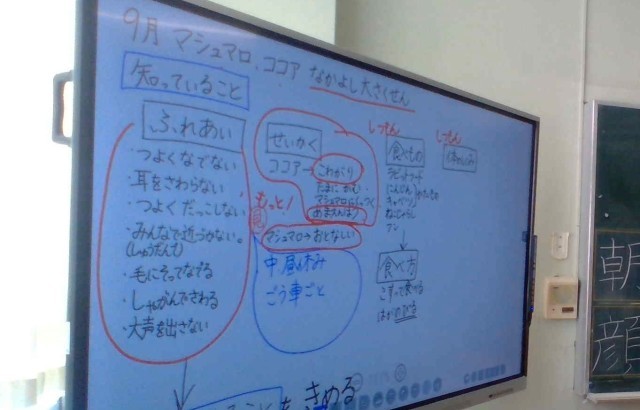 9月 マシュマロ、ココア なかよし大さくせん
知っていること
ふれあい
・つよくなでない
・耳をさわらない
・つよくだっこしない
・みんなで近づかない。
(しゅうだんで)
・毛にそってなでる
・しゃがんでさわる
・大声を出さない
もっと!
せいかく
ココア→こわがり
マシュマロ→おとなしい
中、昼休み
ごう車ごと
しつもん
食べもの
ラビットフード
にんじん
キャベツ
ねこじゃらし
食べ方
しつもん
きめる
朝
顔